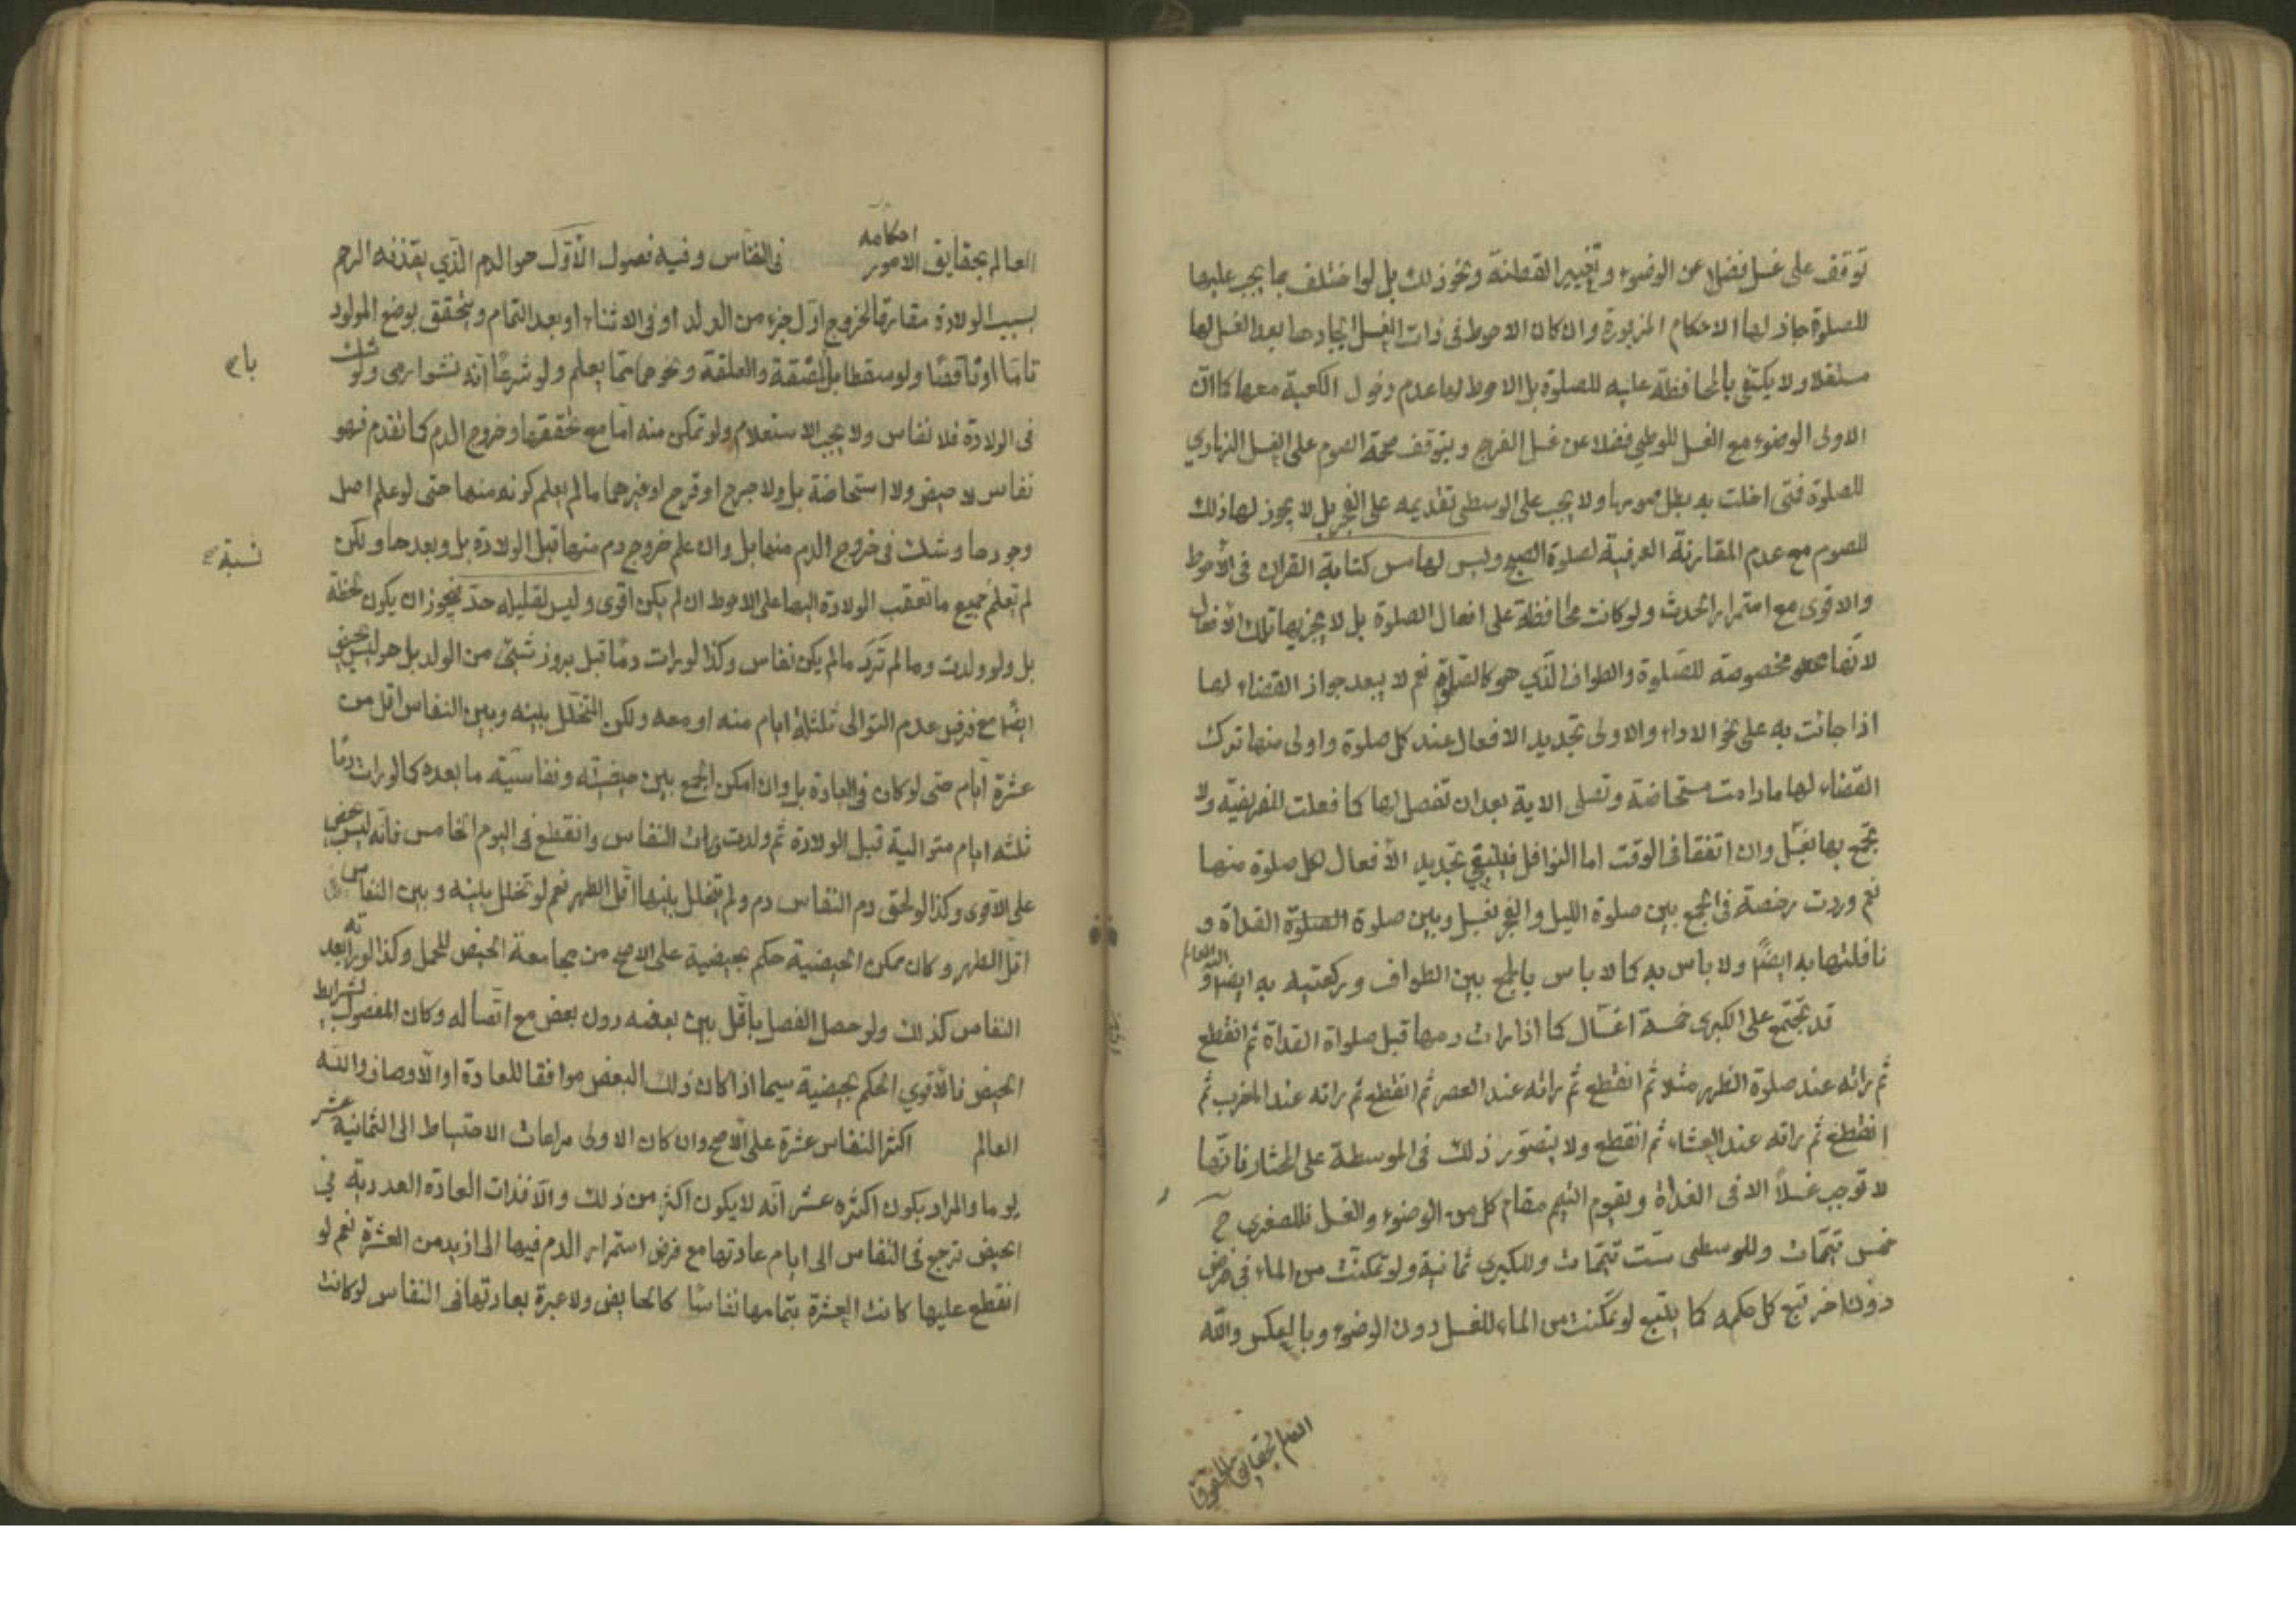 توقف على غسل فضلا عن الوضوء وتغيير القطنة ونحو ذلك بل لو اختلف بما يجب عليها
للصلوة جاز لها الاحكام المزبورة وان كان الاحوط فى ذات الغسل ايجادها بعد الغسل لها
مستقلا ولا يكتفى بالمحافظة عليه للصلوة بل الاحوط لها عدم دخول الكعبة معها كما ان
الاولى الوضوء مع الغسل للوطي فضلا عن غسل الفرج ويتوقف صحة الصوم على الغسل النهاري
للصلوة فمتى اخلت به بطل صومها ولا يجب على الوسطى تقديمه على الفجر بل لا يجوز لها ذلك
للصوم مع عدم المقارنة العرفية لصلوة الصبح وليس لها مس كتابة القران فى الاحوط
والاقوى مع استمرار الحدث ولو كانت محافظة على افعال الصلوة بل لا يجزيها تلك الافعال
لانها مخصوصة للصلوة والطواف الذي هو كالصلوة نعم لا يبعد جواز القضاء لها
اذا جائت به على نحو الاداء والاولى تجديد الافعال عند كل صلوة واولى منها ترك
القضاء لها ما دامت مستحاضة وتصلى الاية بعد ان تفصل لها كما فعلت للفريضة ولا
تجمع بها بغسل وان اتفقا فى الوقت اما النوافل فينبغي تجديد الافعال لكل صلوة منها
نعم وردت رخصة فى الجمع بين صلوة الليل والفجر بغسل وبين صلوة الصلوة الغداة و
نافلتها به ايضا ولا باس به كما لا باس بالجمع بين الطواف وركعتيه به ايضا و الله العالم
قد تجتمع على الكبرى خمسة اغسال كما اذا رات دمها قبل صلواة الغداة ثم انقطع
ثم راته عند صلوة الظهر مثلا ثم انقطع ثم راته عند العصر ثم انقطع ثم راته عند المغرب ثم
انقطع ثم راته عند العشاء ثم انقطع ولا يتصور ذلك فى الموسطة على المختار فانها
لا توجب غسلا الا فى الغداة ويقوم التيمم مقام كل من الوضوء والغسل فللصغرى ح
خمس تيممات وللوسطى ست تيممات وللكبرى ثمانية ولو تمكنت من الماء فى فرض
دون اخر تبع كل حكمه كما يتبع لو تمكنت من الماء للغسل دون الوضوء وبالعكس والله
العالم بحقايق
احكامه
العالم بحقايق الامور فى النفاس وفيه فصول الاول هو الدم الذي يقذفه الرحم
بسبب الولادة مقارنا لخروج اول جزء من الولد او فى الاثناء او بعد التمام ويتحقق بوضع المولود
تاما او ناقصا ولو سقطا بل المضغة والعلقة ونحوهما مما يعلم ولو شرعا انه نشوا دمى ولو شك
فى الولادة فلا نفاس ولا يجب الاستعلام ولو تمكن منه اما مع تحققها وخروج الدم كما تقدم فهو
نفاس لا حيض ولا استحاضة بل ولا جرح او قرح او غيرهما ما لم يعلم كونه منها حتى لو علم اصل
وجودها وشك فى خروج الدم منها بل وان علم خروج دم منها قبل الولادة بل وبعدها ولكن
نسبة
لم تعلم جميع ما تعقب الولادة اليها على الاحوط ان لم يكن اقوى وليس لقليله حد فيجوز ان يكون لحظة
بل ولو ولدت وما لم ترد ما لم يكن نفاس وكذا لو رات دما قبل بروز شيئ من الولد بل هو ليس بحيض
ايضا مع فرض عدم التوالى ثلثة ايام منه او معه ولكن المتخلل بينه وبين النفاس اقل من
عشرة ايام حتى لو كان فى العادة بل وان امكن الجمع بين حيضيته ونفاسية ما بعده كما لو رات دما
ثلثه ايام متوالية قبل الولادة ثم ولدت ورات النفاس وانقطع فى اليوم الخامس فانه ليس بحيض
على الاقوى وكذا لو لحق دم النفاس دم ولم يتخلل بينهما اقل الطهر نعم لو تخلل بينه وبين النفاس
اقل الطهر وكان ممكن الحيضية حكم بحيضية على الاصح من مجامعة الحيض للحمل وكذا لو راته بعد
النفاس كذلك ولو حصل الفصل باقل بين بعضه دون بعض مع اتصاله وكان المفصول بشرايط
الحيض فالاقوي الحكم بحيضية سيما اذا كان ذلك البعض موافقا للعادة او الاوصاف والله
العالم اكثر النفاس عشرة على الاصح وان كان الاولى مراعات الاحتياط الى الثمانية عشر
يوما والمراد بكون اكثره عشر انه لا يكون اكثر من ذلك والا فذات العادة العددية في
الحيض ترجع فى النفاس الى ايام عادتها مع فرض استمرار الدم فيها الى ازيد من العشرة نعم لو
انقطع عليها كانت العشرة بتمامها نفاسا كالحايض ولا عبرة بعادتها فى النفاس لو كانت